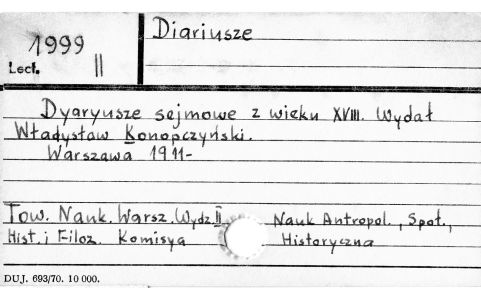 1999 Diariusze
Lect. II
Dyaryusze sejmowe z wieku XVIII. Wydał
Władysław Konopczyński.
Warszawa 1911-
Tow. Nauk. Warsz. Wydz. II Nauk Antropol., Społ.,
Hist. i Filoz. Komisya Historyczna
DUJ. 693/70. 10 000.